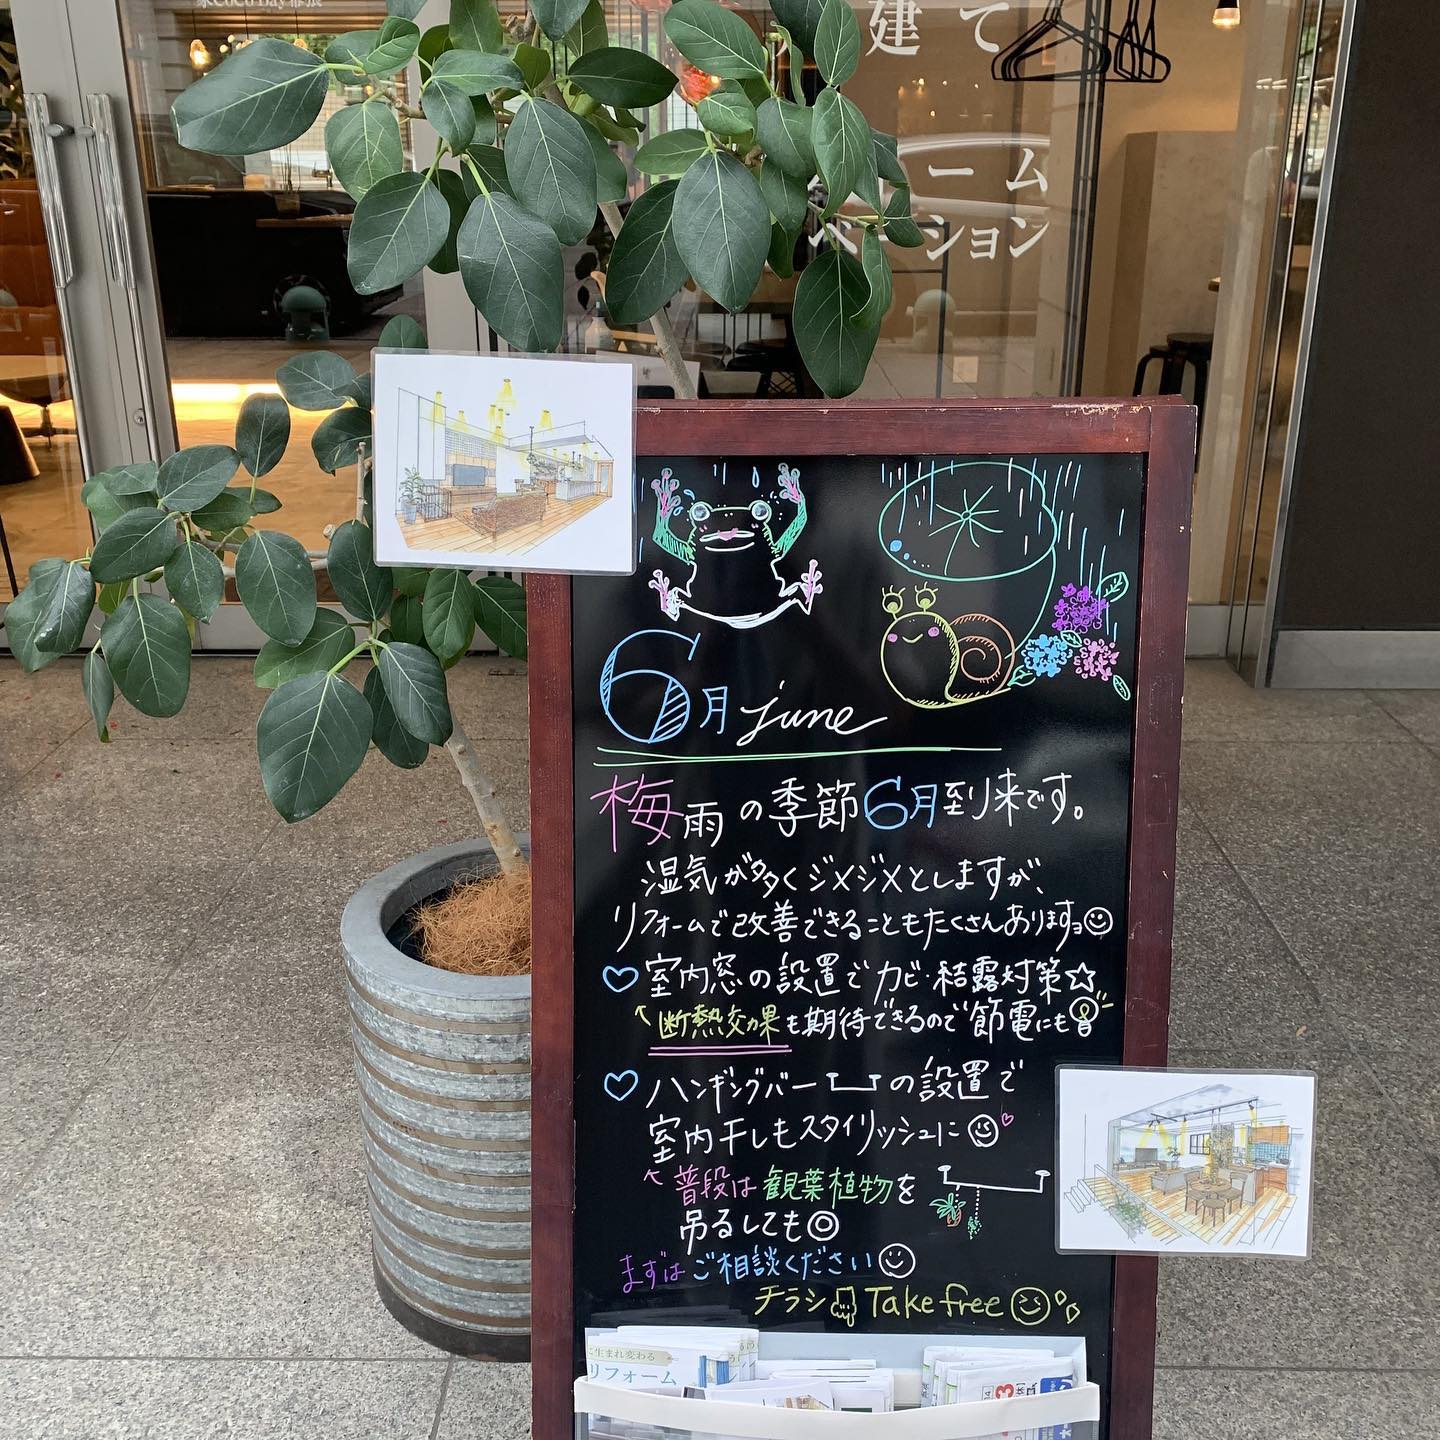 建て
ーム
ベーション
6月 june
梅雨の季節6月到来です。
湿気が多くジメジメとしますが、
リフォームで改善できることもたくさんありますョ
室内窓の設置でカビ・結露対策☆
断熱効果も期待できるので節電にも
ハンギングバーの設置で
室内干しもスタイリッシュに
普段は観葉植物を
吊るしても◎
まずはご相談ください
チラシ Take free
に生まれ変わる
リフォーム